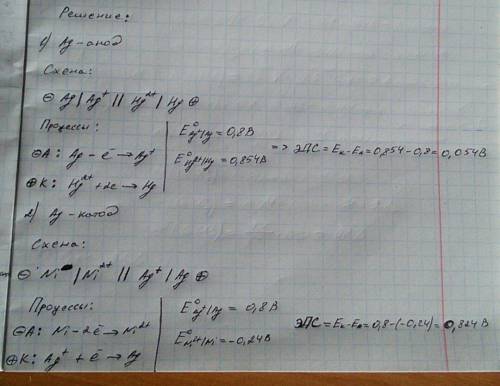 Решение:
1) Ag - анод
Схема:
⊖ Ag | Ag⁺ || Hg²⁺ | Hg ⊕
Процессы:
⊖A: Ag - ē → Ag⁺
⊕K: Hg²⁺ + 2ē → Hg
E°Ag⁺/Ag = 0,8 В
E°Hg²⁺/Hg = 0,854 В
=> ЭДС = Eк - Eа = 0,854 - 0,8 = 0,054 В
2) Ag - катод
Схема:
⊖ Ni | Ni²⁺ || Ag⁺ | Ag ⊕
Процессы:
⊖A: Ni - 2ē → Ni²⁺
⊕K: Ag⁺ + ē → Ag
E°Ag⁺/Ag = 0,8 В
E°Ni²⁺/Ni = -0,24 В
ЭДС = Eк - Eа = 0,8 - (-0,24) = 0,824 В